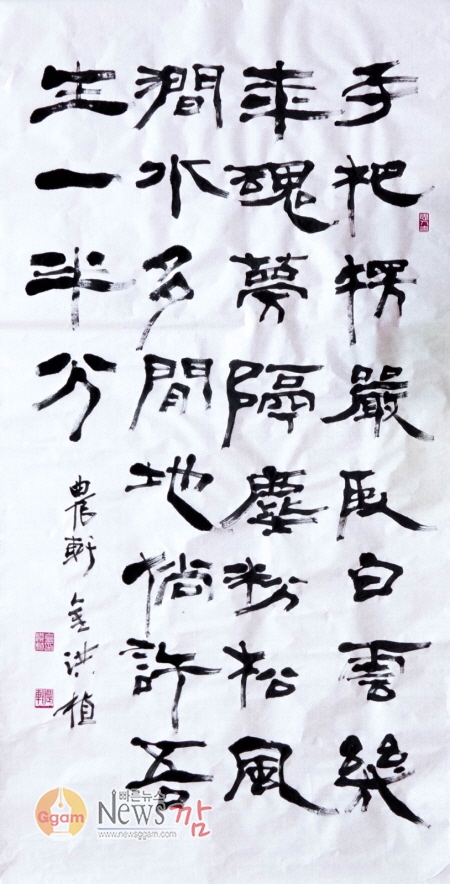 手把楞嚴臥白雲幾
年魂夢隔塵紛松風
澗水多閒地倘許吾
生一半分
農軒 金洪植
Ggam
빠른뉴스
News깜
www.newsggam.com